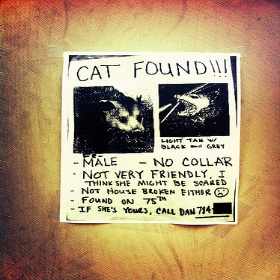 CAT FOUND!!!
LIGHT TAN W/
BLACK AND GREY
- MALE - NO COLLAR
- NOT VERY FRIENDLY. I
THINK SHE MIGHT BE SCARED
- NOT HOUSE BROKEN EITHER
- FOUND ON 75TH
- IF SHE'S YOURS, CALL DAN 714